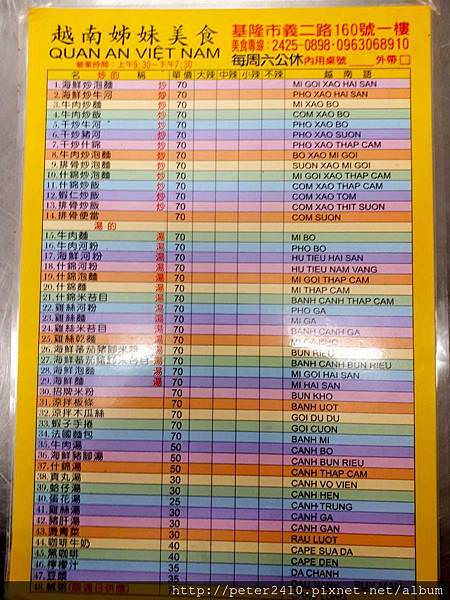 越南姊妹美食
QUAN AN VIỆT NAM
營業時間：上午9:30~下午7:30
基隆市義二路160號一樓
美食專線：2425-0898·0963068910
每周六公休 內用桌號 外帶
名 炒的 稱 單價 大辣 中辣 小辣 不辣 越南語
1.海鮮炒泡麵 炒 70 MI GOI XAO HAI SAN
2.海鮮炒牛河 炒 70 PHO XAO HAI SAN
3.牛肉炒麵 炒 70 MI XAO BO
4.牛肉炒飯 炒 70 COM XAO BO
5.干炒牛河 炒 70 PHO XAO BO
6.干炒豬河 炒 70 PHO XAO SUON
7.干炒什錦 炒 70 PHO XAO THAP CAM
8.牛肉炒泡麵 炒 70 BO XAO MI GOI
9.排骨炒泡麵 炒 70 SUON XAO MI GOI
10.什錦炒泡麵 炒 70 MI GOI XAO THAP CAM
11.什錦炒飯 炒 70 COM XAO THAP CAM
12.蝦仁炒飯 炒 70 COM XAO TOM
13.排骨炒飯 炒 70 COM XAO THIT SUON
14.排骨便當 70 COM SUON
湯的
15.牛肉麵 湯 70 MI BO
16.牛肉河粉 湯 70 PHO BO
17.海鮮河粉 湯 70 HU TIEU HAI SAN
18.什錦河粉 湯 70 HU TIEU NAM VANG
19.什錦泡麵 湯 70 MI GOI THAP CAM
20.什錦麵 湯 70 MI THAP CAM
21.什錦米苔目 湯 70 BANH CANH THAP CAM
22.雞絲河粉 湯 70 PHO GA
23.雞絲麵 湯 70 MI GA
24.雞絲米苔目 湯 70 BANH CANH GA
25.雞絲乾麵 湯 70 MI GA KHO
26.海鮮蕃茄豬腳米粉 湯 70 BUN RIEU
27.海鮮蕃茄豬腳米苔目 湯 70 BANH CANH BUN RIEU
28.海鮮泡麵 湯 70 MI GOI HAI SAN
29.海鮮麵 湯 70 MI HAI SAN
30.招牌米粉 70 BUN KHO
31.涼拌板條 70 BANH UOT
32.涼拌木瓜絲 70 GOI DU DU
33.蝦子手捲 70 GOI CUON
34.法國麵包 70 BANH MI
35.牛肉湯 50 CANH BO
36.海鮮豬腳湯 50 CANH BUN RIEU
37.什錦湯 50 CANH THAP CAM
38.貢丸湯 30 CANH VO VIEN
39.蛤仔湯 30 CANH HEN
40.蛋花湯 25 CANH TRUNG
41.雞絲湯 30 CANH GA
42.豬肝湯 30 CANH GAN
43.燙青菜 30 RAU LUOT
44.咖啡牛奶 40 CAPE SUA DA
45.黑咖啡 35 CAPE DEN
46.檸檬汁 35 DA CHANH
47.豆漿 35
48.鹹粥
http://peter2410.pixnet.net/album